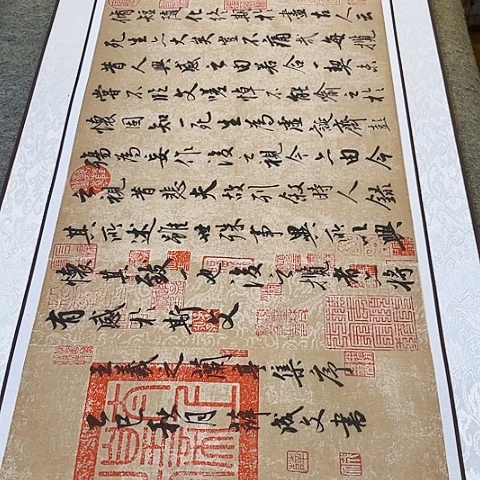 脩短隨化終期於盡古人云
死生亦大矣豈不痛哉每攬
昔人興感之由若合一契未
嘗不臨文嗟悼不能喻之於
懷固知一死生為虛誕齊彭
殤為妄作後之視今亦由今
之視昔悲夫故列叙時人錄
其所述雖世殊事異所以興
懷其致一也後之攬者亦將
有感於斯文
王羲之蘭亭集序
乙巳秋月薛成文書